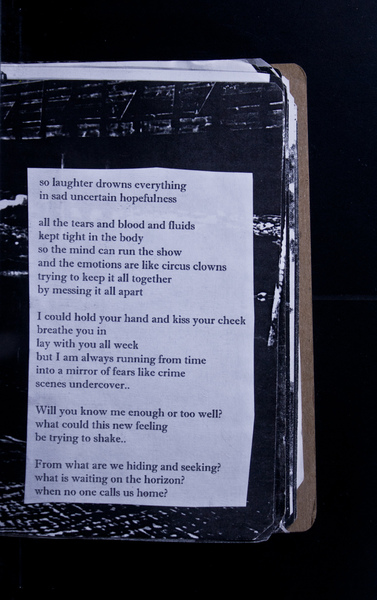 so laughter drowns everything
in sad uncertain hopefulness
all the tears and blood and fluids
kept tight in the body
so the mind can run the show
and the emotions are like circus clowns
trying to keep it all together
by messing it all apart
I could hold your hand and kiss your cheek
breathe you in
lay with you all week
but I am always running from time
into a mirror of fears like crime
scenes undercover..
Will you know me enough or too well?
what could this new feeling
be trying to shake..
From what are we hiding and seeking?
what is waiting on the horizon?
when no one calls us home?